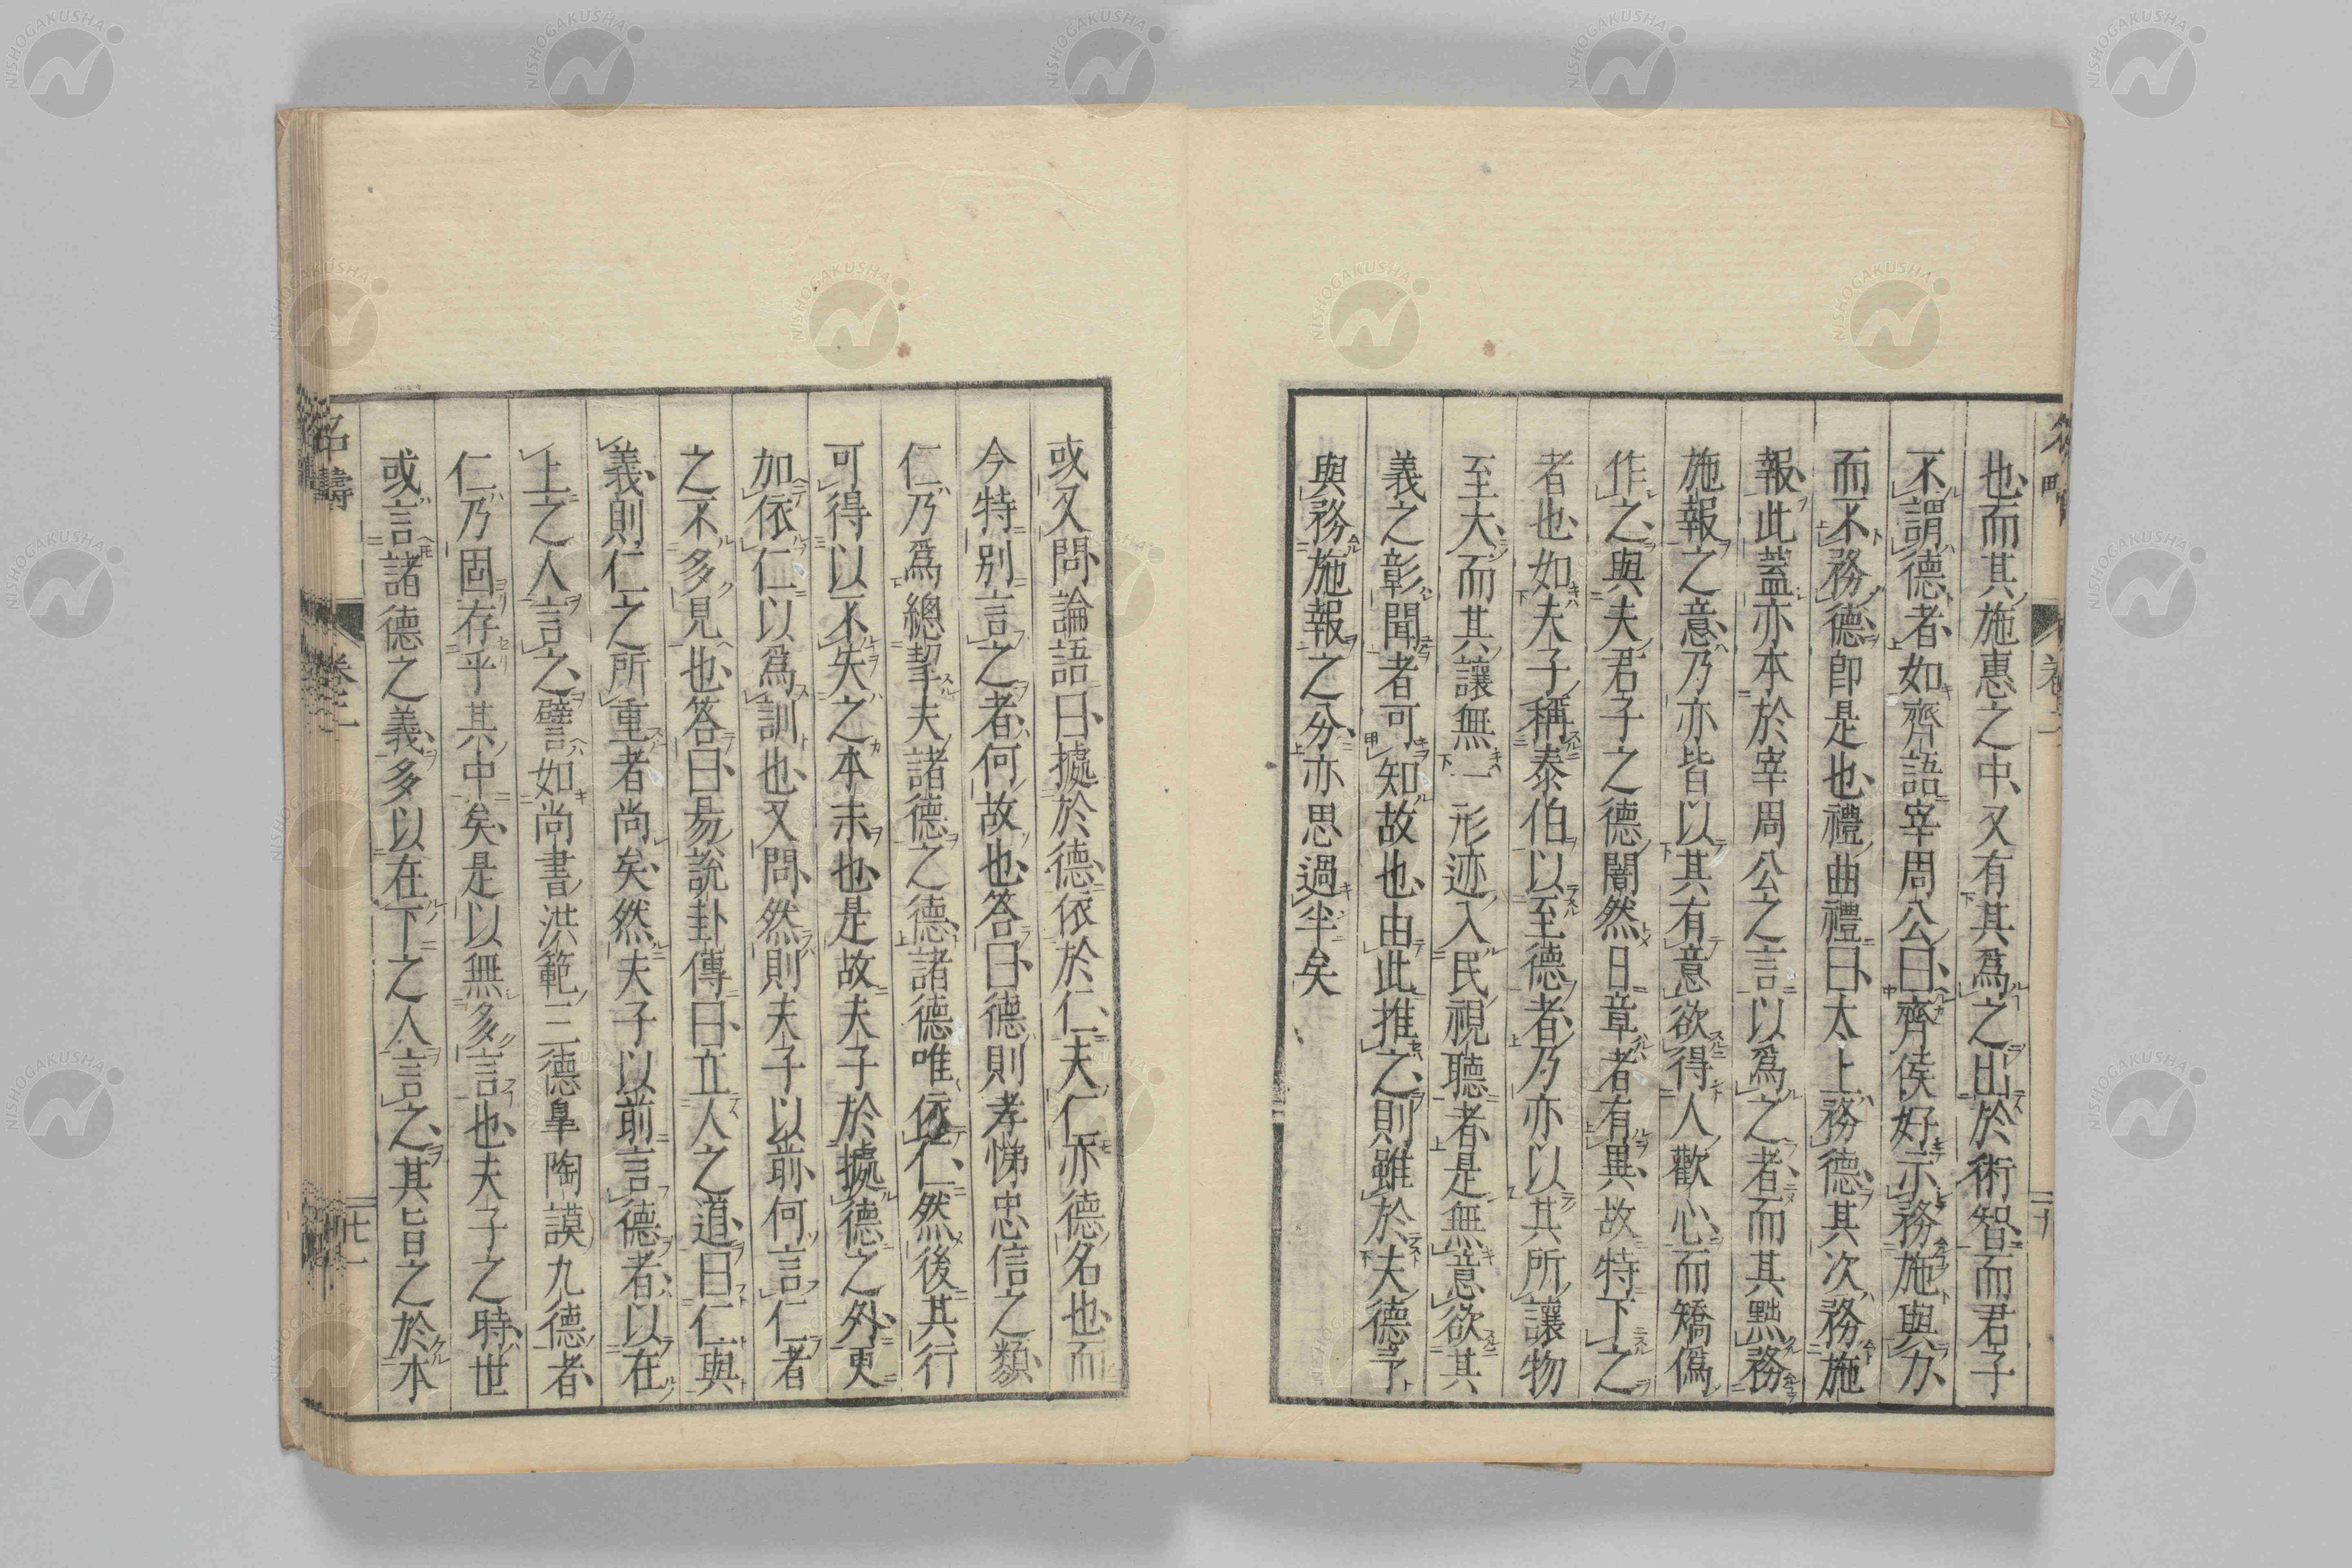 也、而其施惠之中、又有其爲之出於術智、而君子
不謂德者、如齊語宰周公曰、齊侯好示務施與力、
而不務德、卽是也、禮曲禮曰、太上務德、其次務施
報、此蓋亦本於宰周公之言以爲之者、而其㸃務
施報之意、乃亦皆以其有意欲得人歡心、而矯僞
作之、與夫君子之德闇然日章者有異、故特下之
者也、如夫子稱泰伯以至德者、乃亦以其所讓物
至大、而其讓無一形迹入民視聽者、是無意欲其
義之彰聞者可知故也、由此推之、則雖於夫德予
與務施報之分、亦思過半矣、
或又問、論語曰、據於德、依於仁、夫仁亦德名也、而
今特別言之者、何故也、答曰、德則孝悌忠信之類、
仁乃爲總挈夫諸德之德、諸德唯依仁、然後其行
可得以不失之本末也、是故夫子於據德之外、更
加依仁以爲訓也、又問、然則夫子以前、何言仁者
之不多見也、答曰、易說卦傳曰、立人之道、曰仁與
義、則仁之所重者尚矣、然夫子以前言德者、以在
上之人言之、譬如尚書洪範三德皐陶謨九德者、
仁乃固存乎其中矣、是以無多言也、夫子之時、世
或言諸德之義、多以在下之人言之、其旨之於本
名疇
卷二
廿一